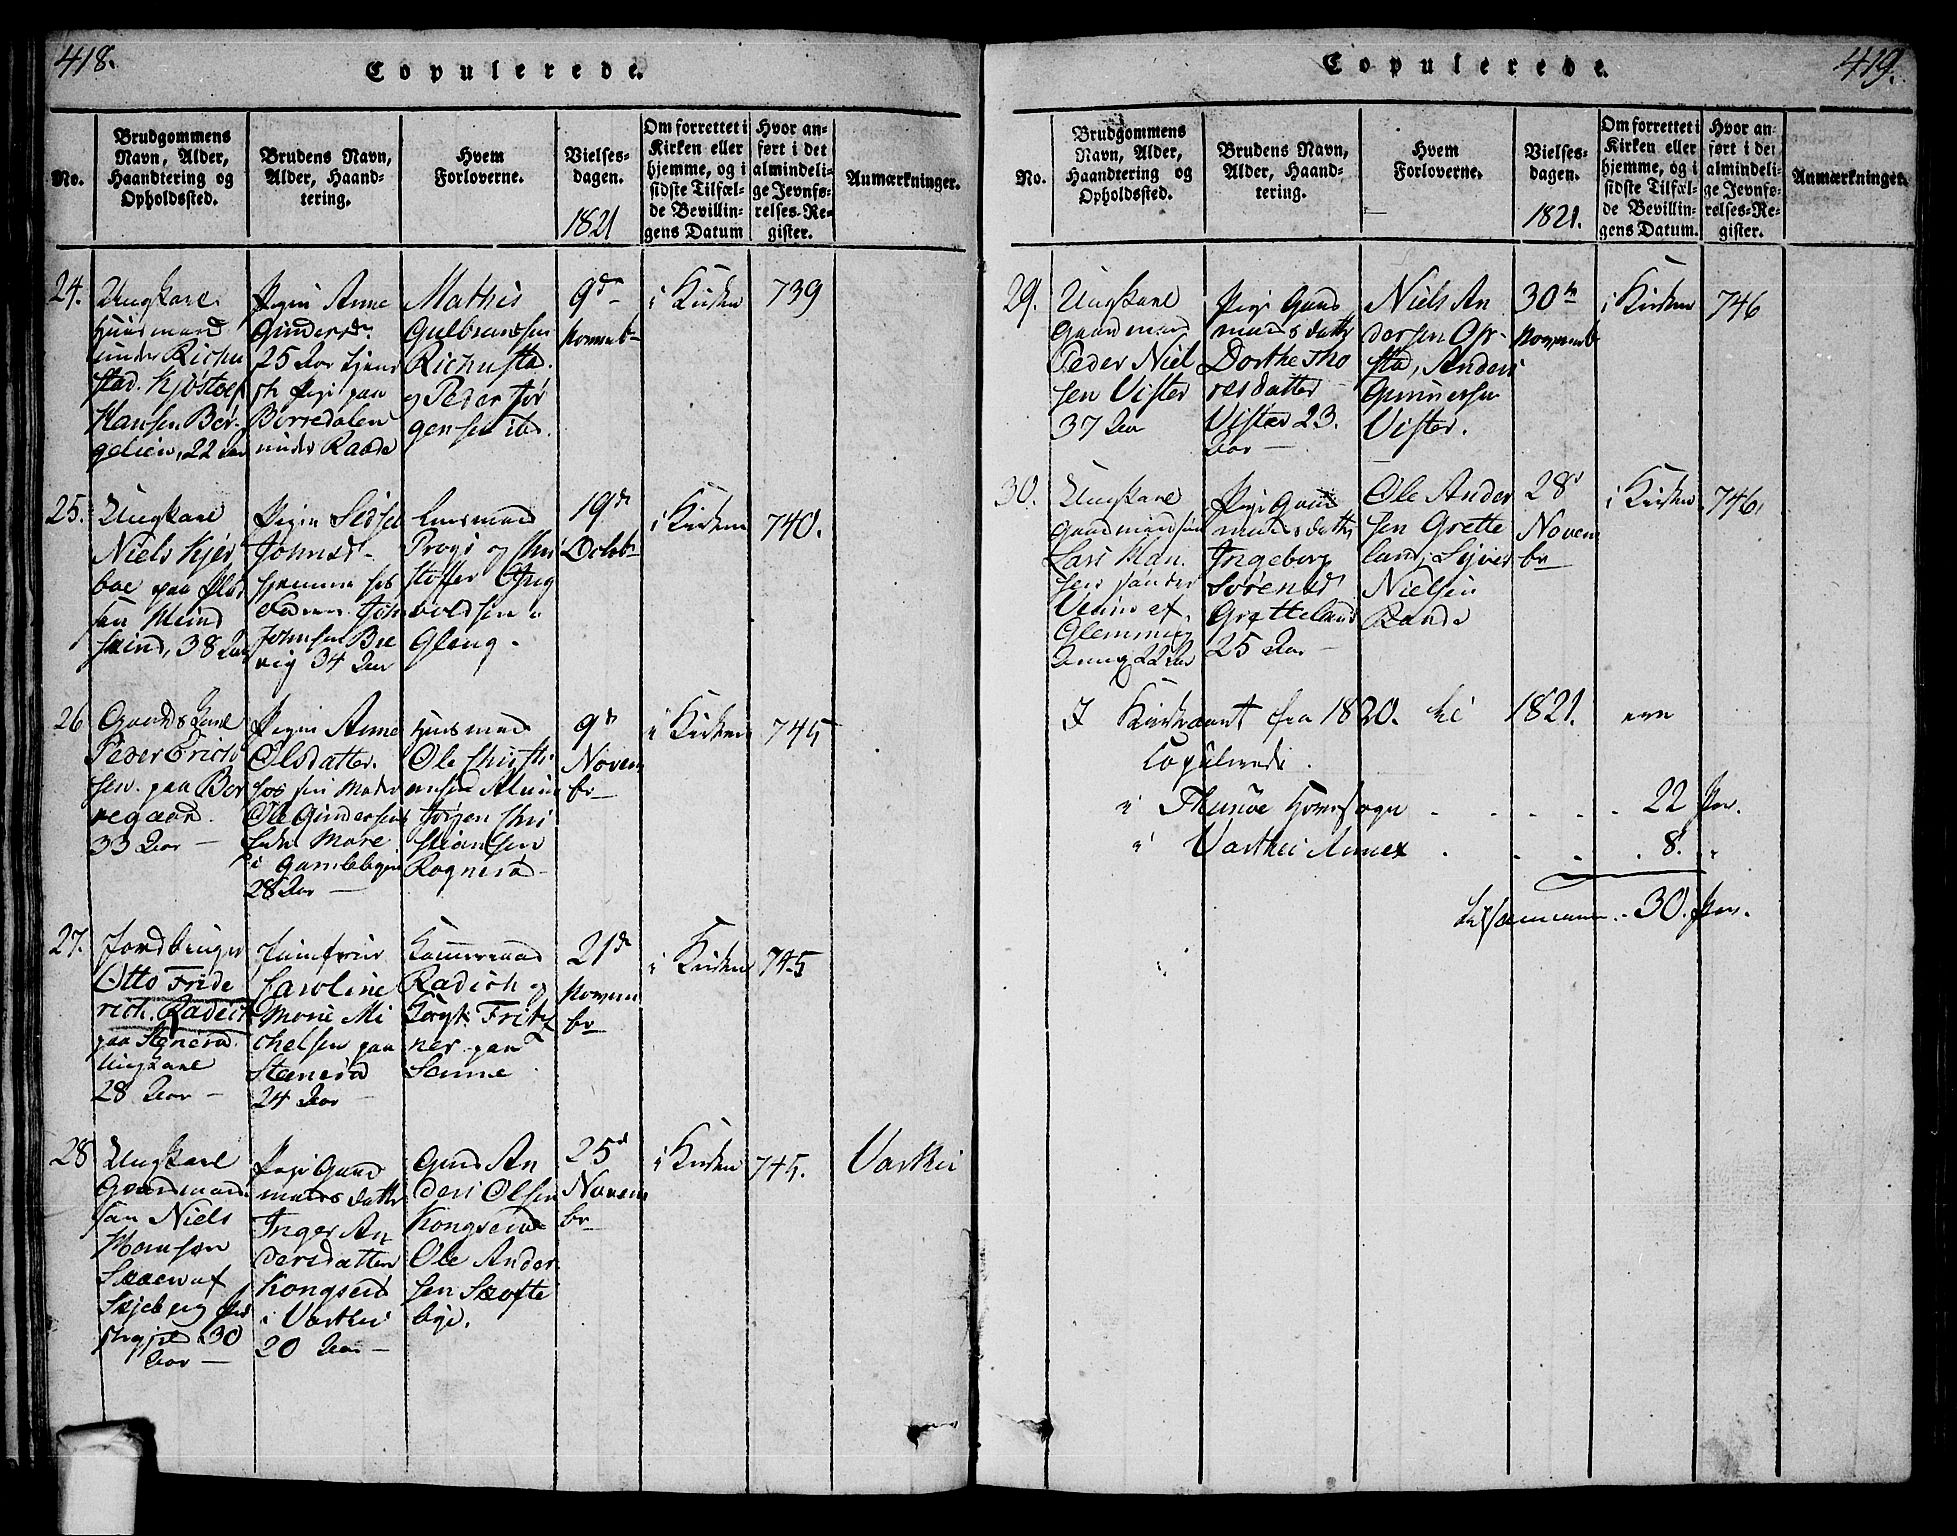 418.
Copulerede.
No.
Brudgommens
Navn, Alder,
Haandtering og
Opholdssted.
Brudens Navn,
Alder, Haand-
tering.
Hvem
Forloverne.
Vielses-
dagen.
1821
Om forrettet i
Kirken eller
hjemme, og i
sidste Tilfæl-
de Bevillin-
gens Datum
Hvor an-
ført i det
almindeli-
ge Jevnfø-
relses-Re-
gister.
Anmærkninger.
24.
Ungkarl
Huusmand
under Richu
stad. Kjøstolf
Hansen Bør-
gelien, 22 Aar
Pigen Anne
Gundersdr
25 Aar
Borredalen
under Raade
Mathis
Gulbrandsen
Richustad.
og Peder Jør
gensen ibd.
9de
Novemb
i Kirken
739
25.
Ungkarl
Niels Kjer
boe paa
38 Aar
Pigen Sidsel
Johnsd
hjemme hos
Faderen John
Johnsen Bre
vig 34 Aar
og Chri
stoffer Ing
voldsen
Gleng.
19de
Octobr
i Kirken
740.
26
Gaards Karl
Peder Erich
sen paa Bor
regaard.
33 Aar
Pigen Anne
Olsdatter
hos sin Moder
Ole Gundersens
Enke More
i Gamlebyen
28 Aar
Huusmand
Ole Christi
ansen
Jørgen Chri
stiansen
Rognerød
9de
Novem
br
i Kirken
745
27.
Jordbruger
Otto Fride
rich Radich
paa Stenerød
Ungkarl
28 Aar
Jomfrue
Caroline
Marie Mi
chelsen paa
Stenerød
24 Aar
Kammerraad
Radich og
Fritz
ner paa
Sanne
21de
Novem
br
i Kirken
745
28
Ungkarl
Gaardmand
søn Niels
Monsson
af
Skjeberg Præ
stegjeld 30
Aar
Pige Gaard
mandsdatter
Inger An
dersdatter
Kongserød
i Varteig
20 Aar
Gaard An
ders Olsen
Kongserød
Ole Ander
sen Skofte
bye.
25de
Novem
br
i Kirken
745.
Varteig
419.
Copulerede.
No.
Brudgommens
Navn, Alder,
Haandtering og
Opholdssted.
Brudens Navn,
Alder, Haand-
tering.
Hvem
Forloverne.
Vielses-
dagen.
1821.
Om forrettet i
Kirken eller
hjemme, og i
sidste Tilfæl-
de Bevillin-
gens Datum.
Hvor an-
ført i det
almindeli-
ge Jevnfø-
relses-Re-
gister.
Anmærkninger.
29.
Ungkarl
Gaardmand
Peder Niel
sen Vister
37 Aar
Pige Gaard
mandsdatter
Dorthe Tho
resdatter
Vister 23.
Aar
Niels An
dersen Op-
stad, Anders
Gunnersen
Vister.
30te
Novemb
i Kirken
746
30.
Ungkarl
Gaardmandsøn
Lars Han
sen
af
Glemminge
22 Aar
Pige Gaard
mandsdatter
Ingeborg
Sørensd
Grøtteland
25 Aar
Ole Ander
sen Grette
land, Syver
Nielsen
Raade
28de
Novem
br
i Kirken
746.
I Kirkeaaret fra 1820. til 1821. ere
Copulerede.
i Thunøe Hovedsogn 22 Par.
i Varteig Annex 8. "
tilsammen 30. Par.